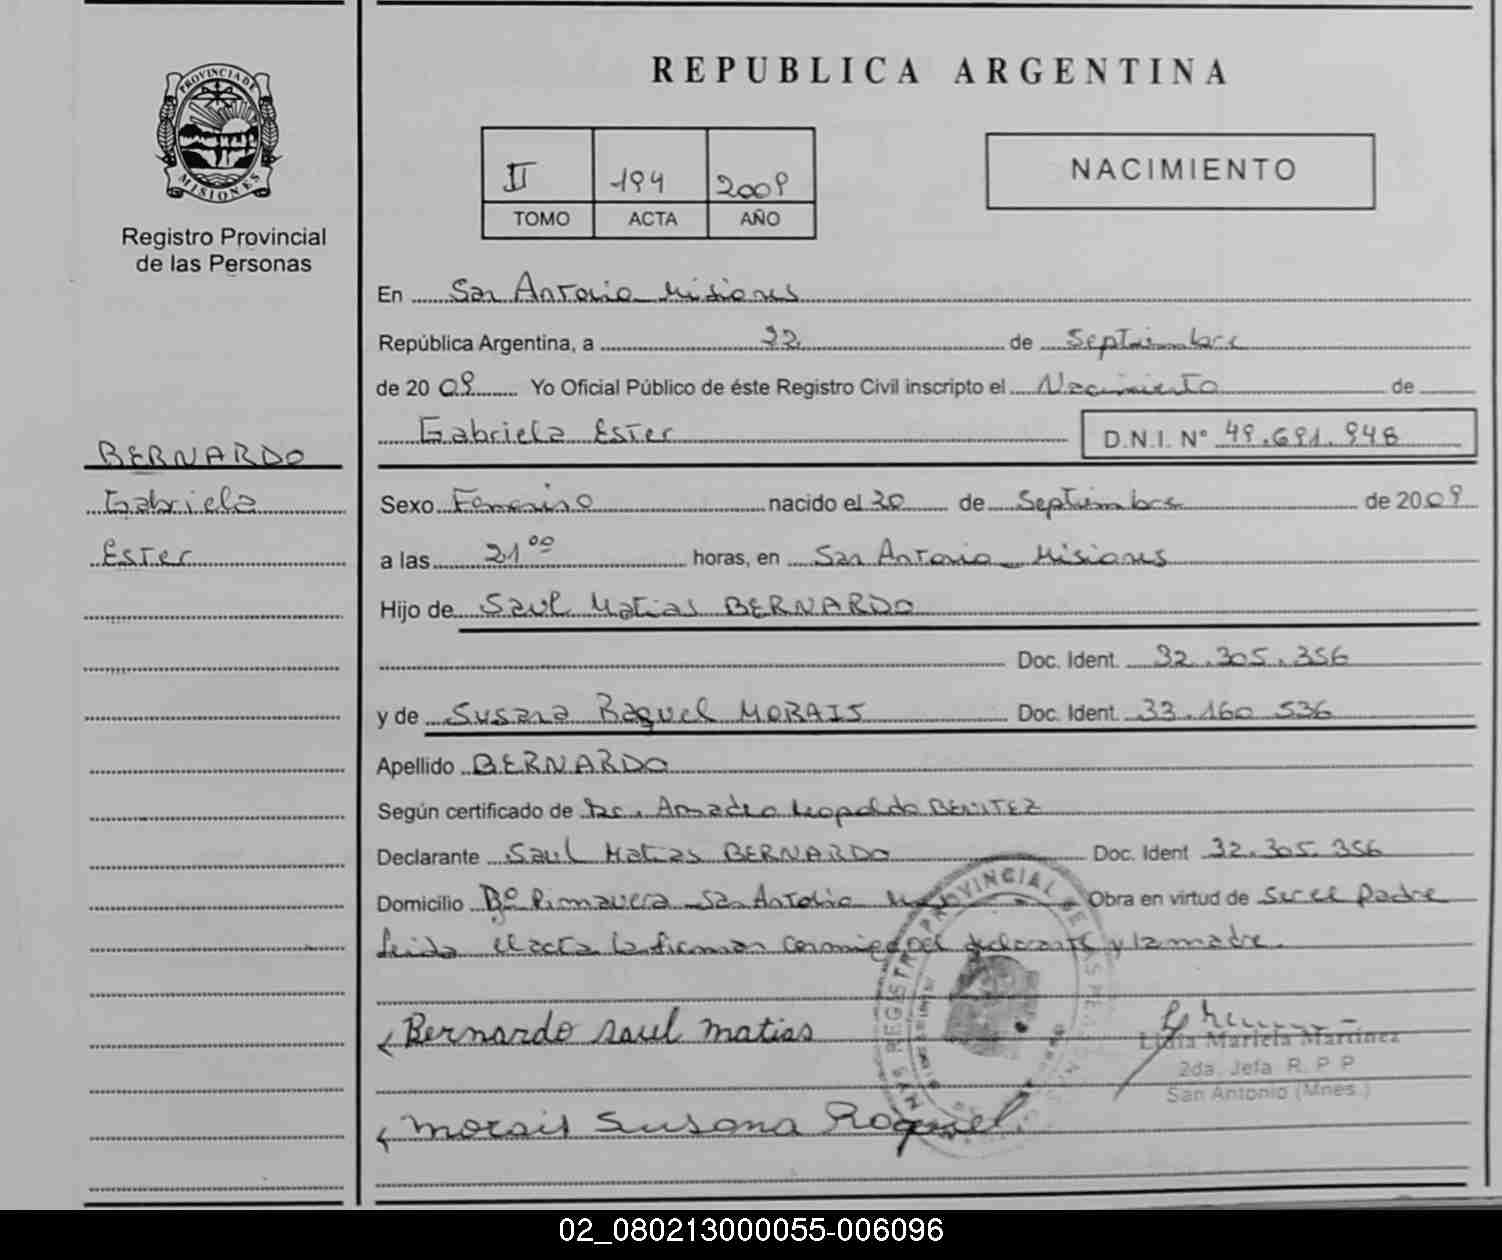 PROVINCIA DE
MISIONES
Registro Provincial
de las Personas
BERNARDO
Gabriela
Ester
REPUBLICA ARGENTINA
II 194 2009
TOMO ACTA AÑO
NACIMIENTO
En San Antonio Misiones
República Argentina, a 22 de Septiembre
de 2009 Yo Oficial Público de éste Registro Civil inscripto el Nacimiento de
Gabriela Ester D.N.I. N° 49.691.948
Sexo Femenino nacido el 20 de Septiembre de 2009
a las 21⁰⁰ horas, en San Antonio Misiones
Hijo de Saul Matias BERNARDO
Doc. Ident. 32.305.356
y de Susana Raquel MORAIS Doc. Ident. 33.160.536
Apellido BERNARDO
Según certificado de Dr. Amadeo Leopoldo BENITEZ
Declarante Saul Matias BERNARDO Doc. Ident 32.305.356
Domicilio Bº Primavera San Antonio Obra en virtud de ser el Padre
Leida el acta la firman conmigo el declarante y la madre.
REGISTRO PROVINCIAL DE LAS PERSONAS
Bernardo saul matias
Lidia Mariela Martinez
2da. Jefa R. P P
San Antonio (Mnes.)
morais Susana Raquel
02_080213000055-006096